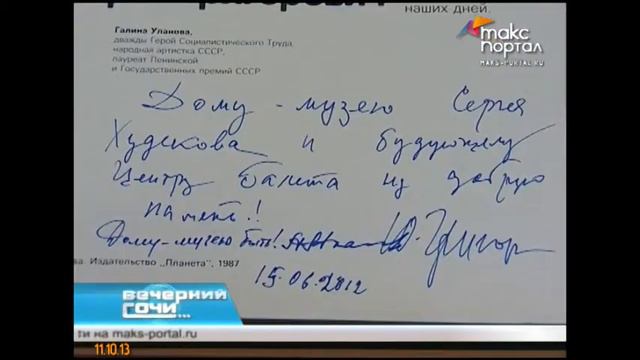 наших дней.
макс
портал
MAKS-PORTAL.RU
Галина Уланова,
дважды Герой Социалистического Труда,
народная артистка СССР,
лауреат Ленинской
и Государственных премий СССР
Дому-музею Сергея
Худекова и будующему
Центру балета на добрую
память!
Дому-музею быть! Ю. Григор
ва. Издательство „Планета", 1987
15.06.2012
вечерний
сочи...
ти на maks-portal.ru
11.10.13